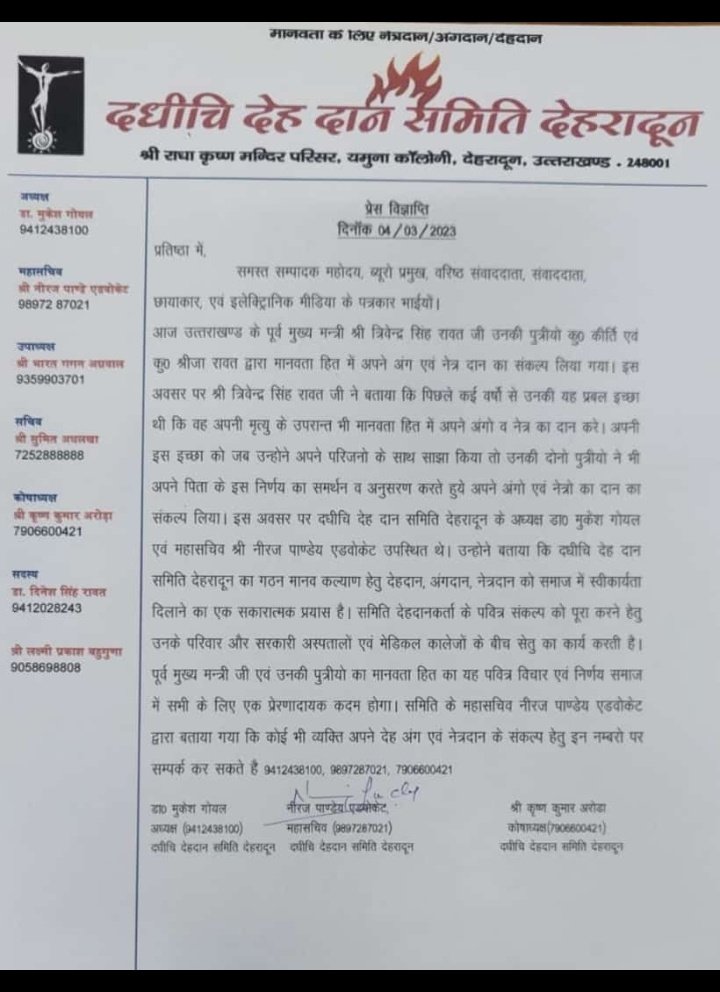 मानवता के लिए नेत्रदान/अंगदान/देहदान
दधीचि देह दान समिति देहरादून
श्री राधा कृष्ण मन्दिर परिसर, यमुना कॉलोनी, देहरादून, उत्तराखण्ड - 248001
अध्यक्ष
डा. मुकेश गोयल
9412438100
महासचिव
श्री नीरज पाण्डे एडवोकेट
98972 87021
उपाध्यक्ष
श्री भारत गगन अग्रवाल
9359903701
सचिव
श्री सुमित अधलखा
7252888888
कोषाध्यक्ष
श्री कृष्ण कुमार अरोड़ा
7906600421
सदस्य
डा. दिनेश सिंह रावत
9412028243
श्री लक्ष्मी प्रकाश बहुगुणा
9058698808
प्रेस विज्ञाप्ति
दिनॉक 04/03/2023
प्रतिष्ठा में,
समस्त सम्पादक महोदय, ब्यूरो प्रमुख, वरिष्ठ संवाददाता, संवाददाता,
छायाकार, एवं इलेक्ट्रिानिक मीडिया के पत्रकार भाईयों।
आज उत्तराखण्ड के पूर्व मुख्य मन्त्री श्री त्रिवेन्द्र सिंह रावत जी उनकी पुत्रीयो कु0 कीर्ति एवं
कु0 श्रीजा रावत द्वारा मानवता हित में अपने अंग एवं नेत्र दान का संकल्प लिया गया। इस
अवसर पर श्री त्रिवेन्द्र सिंह रावत जी ने बताया कि पिछले कई वर्षो से उनकी यह प्रबल इच्छा
थी कि वह अपनी मृत्यु के उपरान्त भी मानवता हित में अपने अंगो व नेत्र का दान करे। अपनी
इस इच्छा को जब उन्होने अपने परिजनो के साथ साझा किया तो उनकी दोनो पुत्रीयो ने भी
अपने पिता के इस निर्णय का समर्थन व अनुसरण करते हुये अपने अंगो एवं नेत्रो का दान का
संकल्प लिया। इस अवसर पर दधीचि देह दान समिति देहरादून के अध्यक्ष डा0 मुकेश गोयल
एवं महासचिव श्री नीरज पाण्डेय एडवोकेट उपस्थित थे। उन्होने बताया कि दधीचि देह दान
समिति देहरादून का गठन मानव कल्याण हेतु देहदान, अंगदान, नेत्रदान को समाज में स्वीकार्यता
दिलाने का एक सकारात्मक प्रयास है। समिति देहदानकर्ता के पवित्र संकल्प को पूरा करने हेतु
उनके परिवार और सरकारी अस्पतालों एवं मेडिकल कालेजों के बीच सेतु का कार्य करती है।
पूर्व मुख्य मन्त्री जी एवं उनकी पुत्रीयो का मानवता हित का यह पवित्र विचार एवं निर्णय समाज
में सभी के लिए एक प्रेरणादायक कदम होगा। समिति के महासचिव नीरज पाण्डेय एडवोकेट
द्वारा बताया गया कि कोई भी व्यक्ति अपने देह अंग एवं नेत्रदान के संकल्प हेतु इन नम्बरो पर
सम्पर्क कर सकते है 9412438100, 9897287021, 7906600421
डा0 मुकेश गोयल नीरज पाण्डेय एडवोकेट, श्री कृष्ण कुमार अरोडा
अध्यक्ष (9412438100) महासचिव (9897287021) कोषाध्यक्ष(7906600421)
दधीचि देहदान समिति देहरादून दधीचि देहदान समिति देहरादून दधीचि देहदान समिति देहरादून